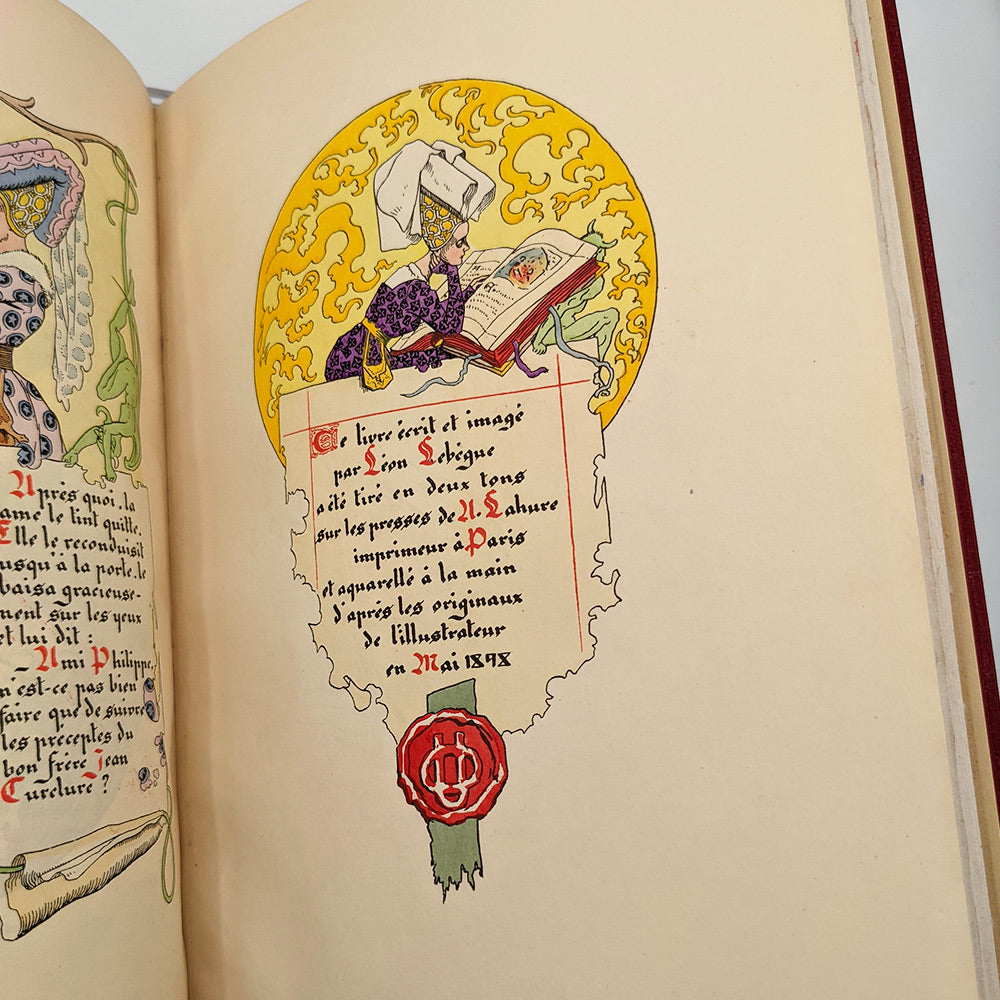 Après quoi, la
ame le tint quitte.
Elle le reconduisit
usqu'à la porte, le
baisa gracieuse-
ment sur les yeux
et lui dit :
- Ami Philippe,
n'est-ce pas bien
faire que de suivre
les préceptes du
bon frère Jean
Curelure ?
Ce livre écrit et imagé
par Léon Lebègue
a été tiré en deux tons
sur les presses de A. Lahure
imprimeur à Paris
et aquarellé à la main
d'après les originaux
de l'illustrateur
en Mai 1898